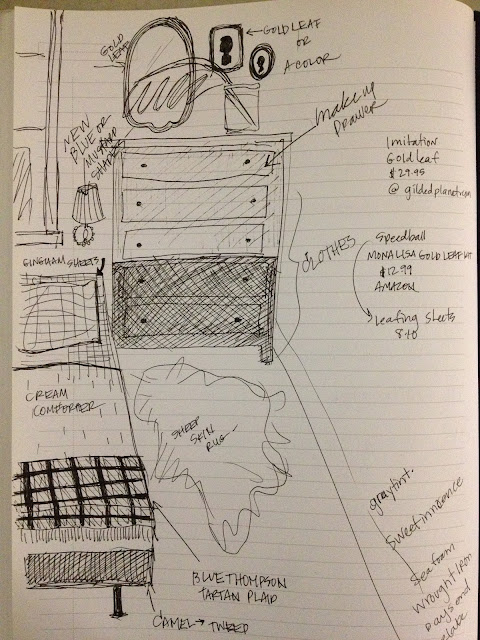 GOLD
LEAF
GOLD LEAF
OR
A COLOR
NEW
BLUE OR
MUSTARD
SHADE
makeup
Drawer
Imitation
Gold leaf
$29.95
@ gildedplanet.com
CLOTHES
Speedball
MONA LISA GOLD LEAF KIT
$12.99
AMAZON
leafing sheets
GINGHAM SHEETS
CREAM
COMFORTER
SHEEP
SKIN
RUG
BLUE THOMPSON
TARTAN PLAID
CAMEL → TWEED
graytint.
Sweet innocence
Seafoam
Wrought Iron
Days end